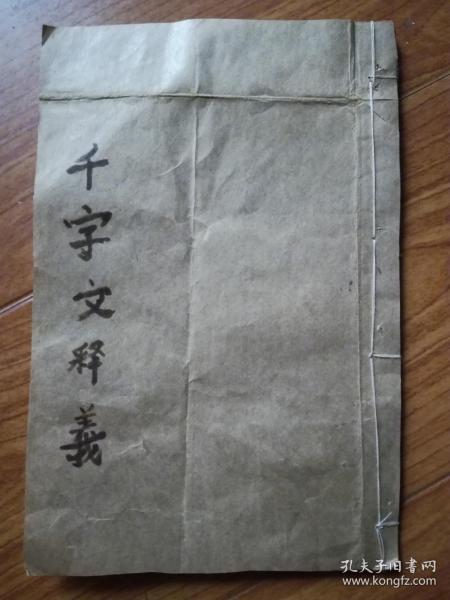 千字文释義
孔夫子旧书网
www.kongfz.com